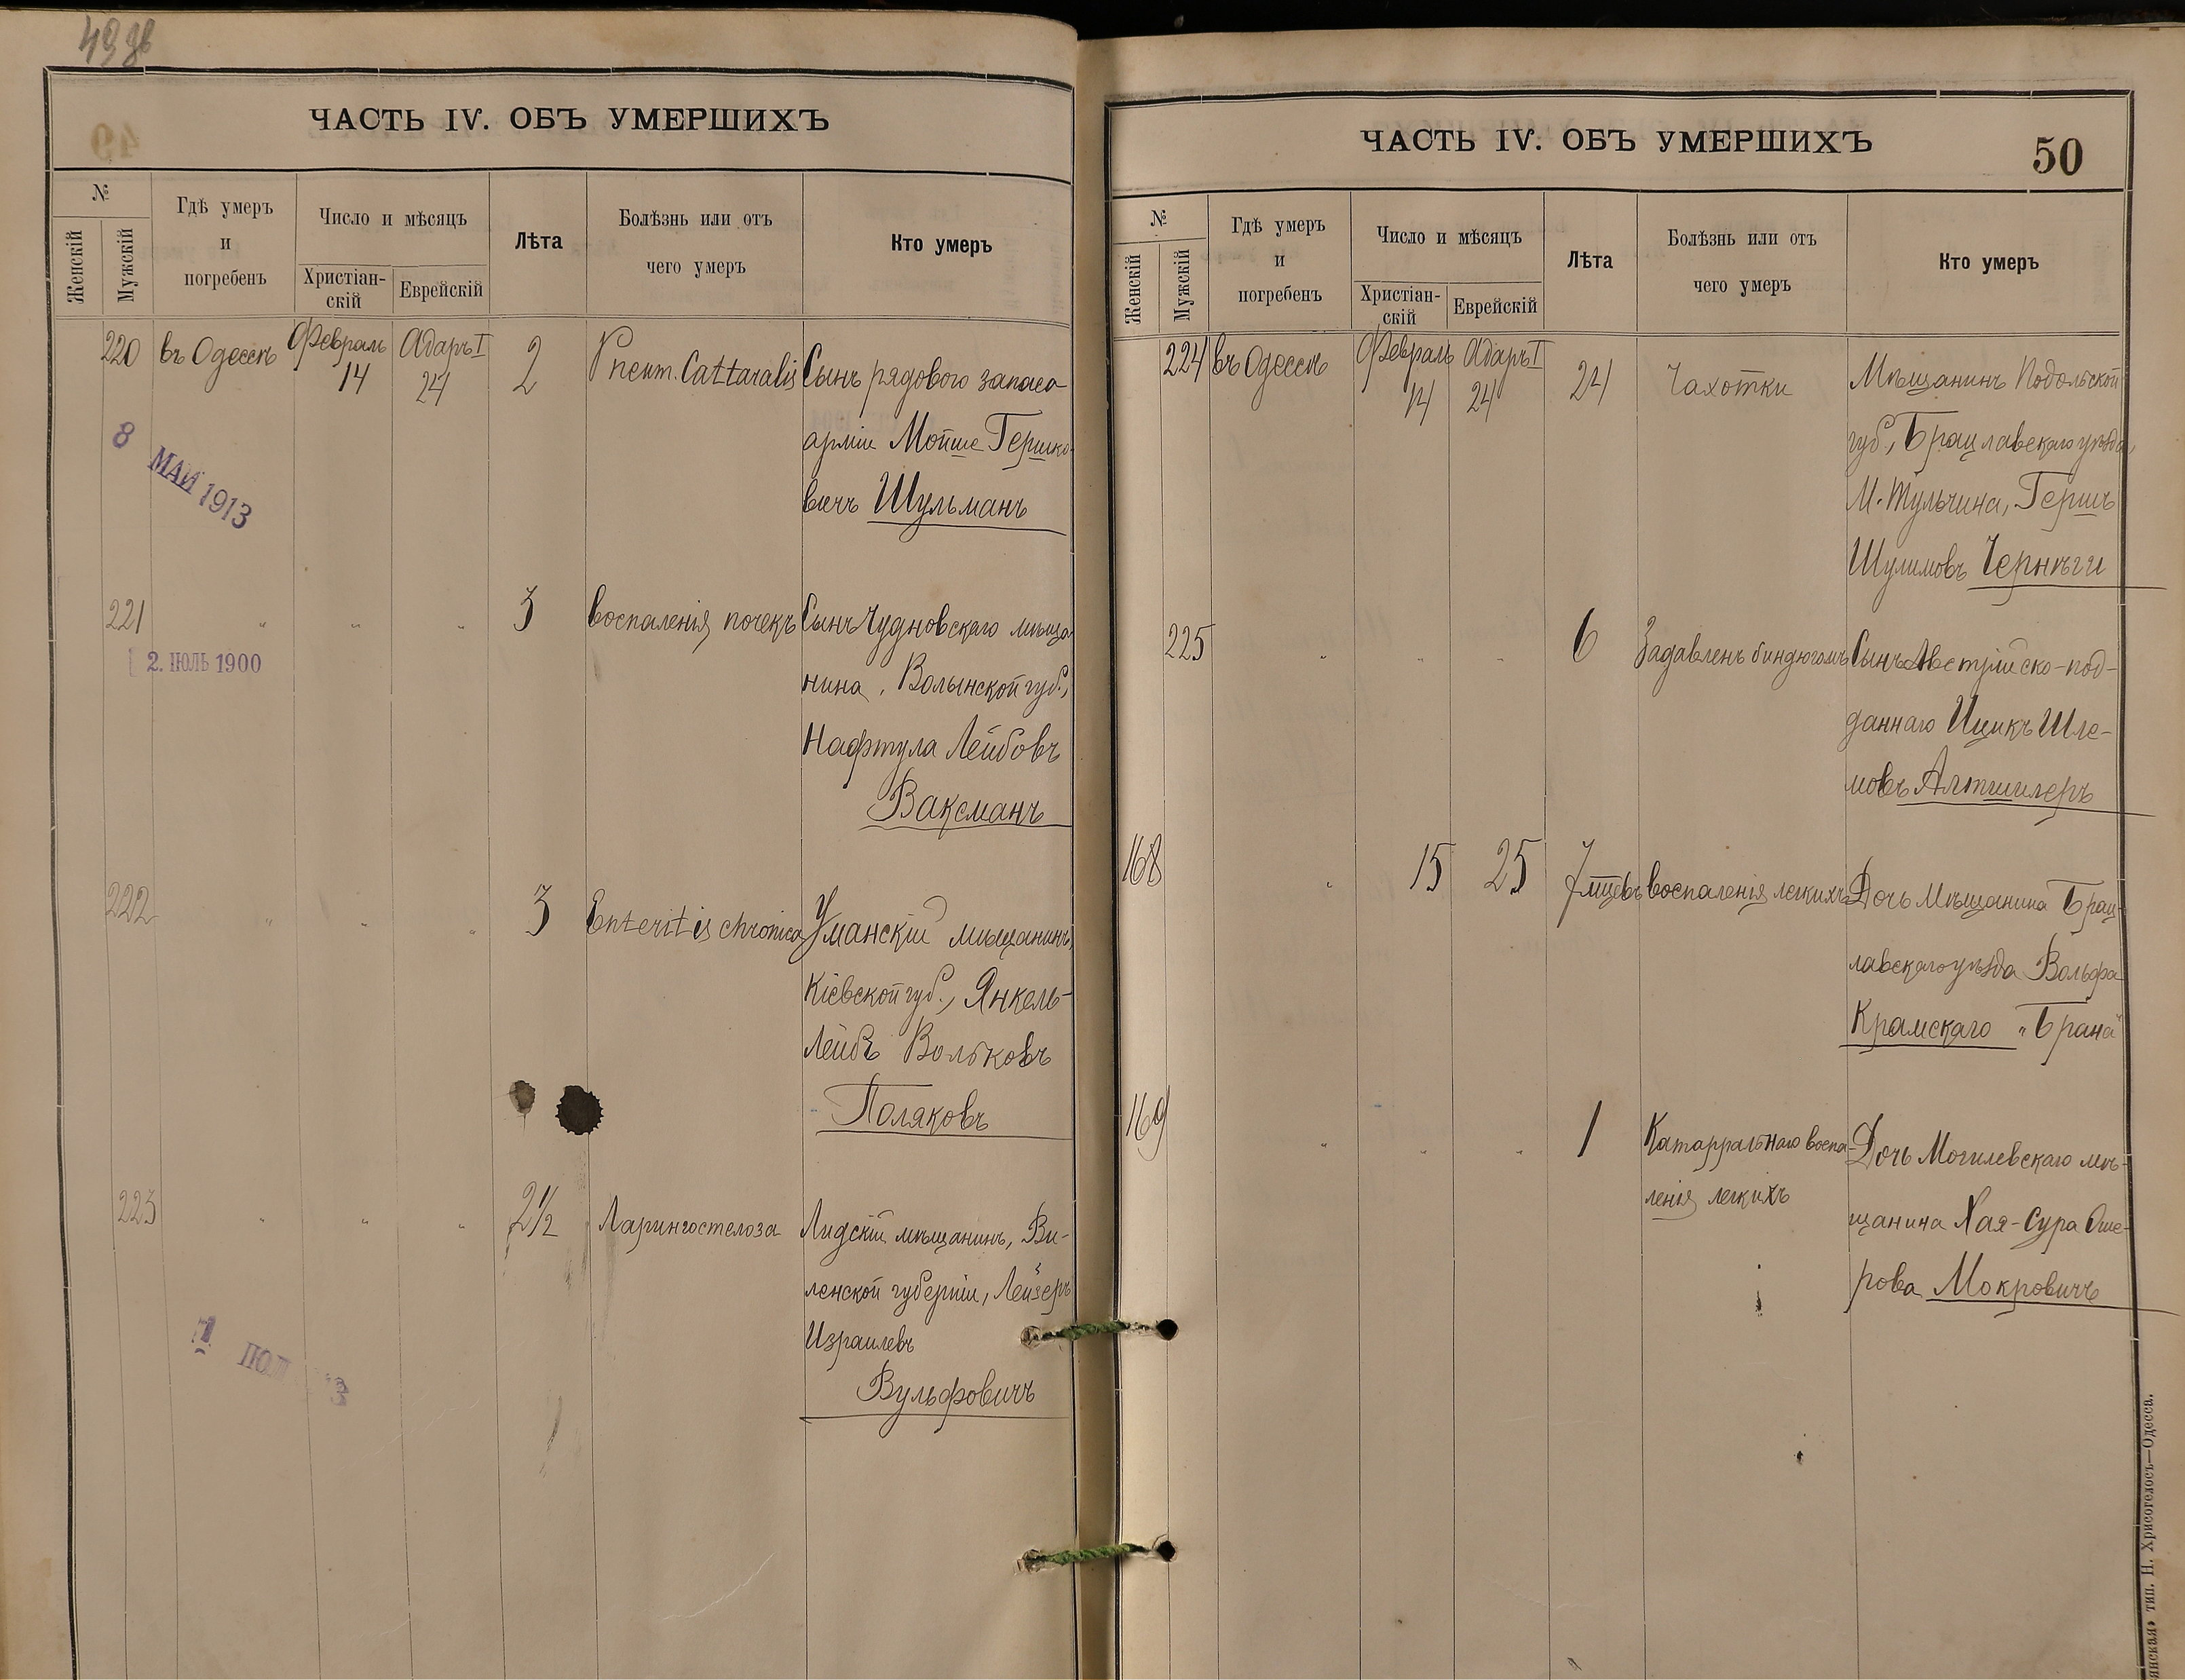 49 об
ЧАСТЬ IV. ОБЪ УМЕРШИХЪ
№
Женскій
Мужскій
Гдѣ умеръ
и
погребенъ
Число и мѣсяцъ
Христіан-
скій
Еврейскій
Лѣта
Болѣзнь или отъ
чего умеръ
Кто умеръ
220 въ Одессѣ Февраль 14 Адаръ I 24 2 Pneum. Cattaralis Сынъ рядового запаса
арміи Мойше Гершко-
вичъ Шульманъ
8 МАЙ 1913
221 " " " 3 воспаленія почекъ Сынъ Чудновскаго мѣща-
нина, Волынской губ.,
Нафтула Лейбовъ
Ваксманъ
2. ІЮЛЬ 1900
222 " " " 3 Enteritis chronica Уманскій мѣщанинъ,
Кіевской губ., Янкель-
Лейбъ Вольковъ
Поляковъ
223 " " " 2½ Ларингостеноза Лидскій мѣщанинъ, Ви-
ленской губерніи, Лейзеръ
Израилевъ
Вульфовичъ
ЧАСТЬ IV. ОБЪ УМЕРШИХЪ
50
№
Женскій
Мужскій
Гдѣ умеръ
и
погребенъ
Число и мѣсяцъ
Христіан-
скій
Еврейскій
Лѣта
Болѣзнь или отъ
чего умеръ
Кто умеръ
224 въ Одессѣ Февраль 14 Адаръ I 24 24 Чахотки Мѣщанинъ Подольской
губ., Брацлавскаго уѣзда,
М. Тульчина, Гершъ
Шулимовъ
225 " " " 6 Задавленъ биндюгомъ Сынъ Австрійско-под-
даннаго Ицикъ Шле-
мовъ Алтшилеръ
168 " 15 25 7 мцевъ воспаленія легкихъ Дочь Мѣщанина Брац-
лавскаго уѣзда Вольфа
Крамскаго "Брана"
169 " " " 1 Катарральнаго воспа-
ленія легкихъ
Дочь Могилевскаго мѣ-
щанина Хая-Сура Оше-
рова Мокровичъ
тип. Н. Хрисогелосъ—Одесса.